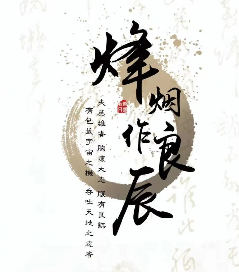 烽烟作良辰
夫英雄者 胸懷大志 腹有良謀
有包藏宇宙之機 吞吐天地之志者